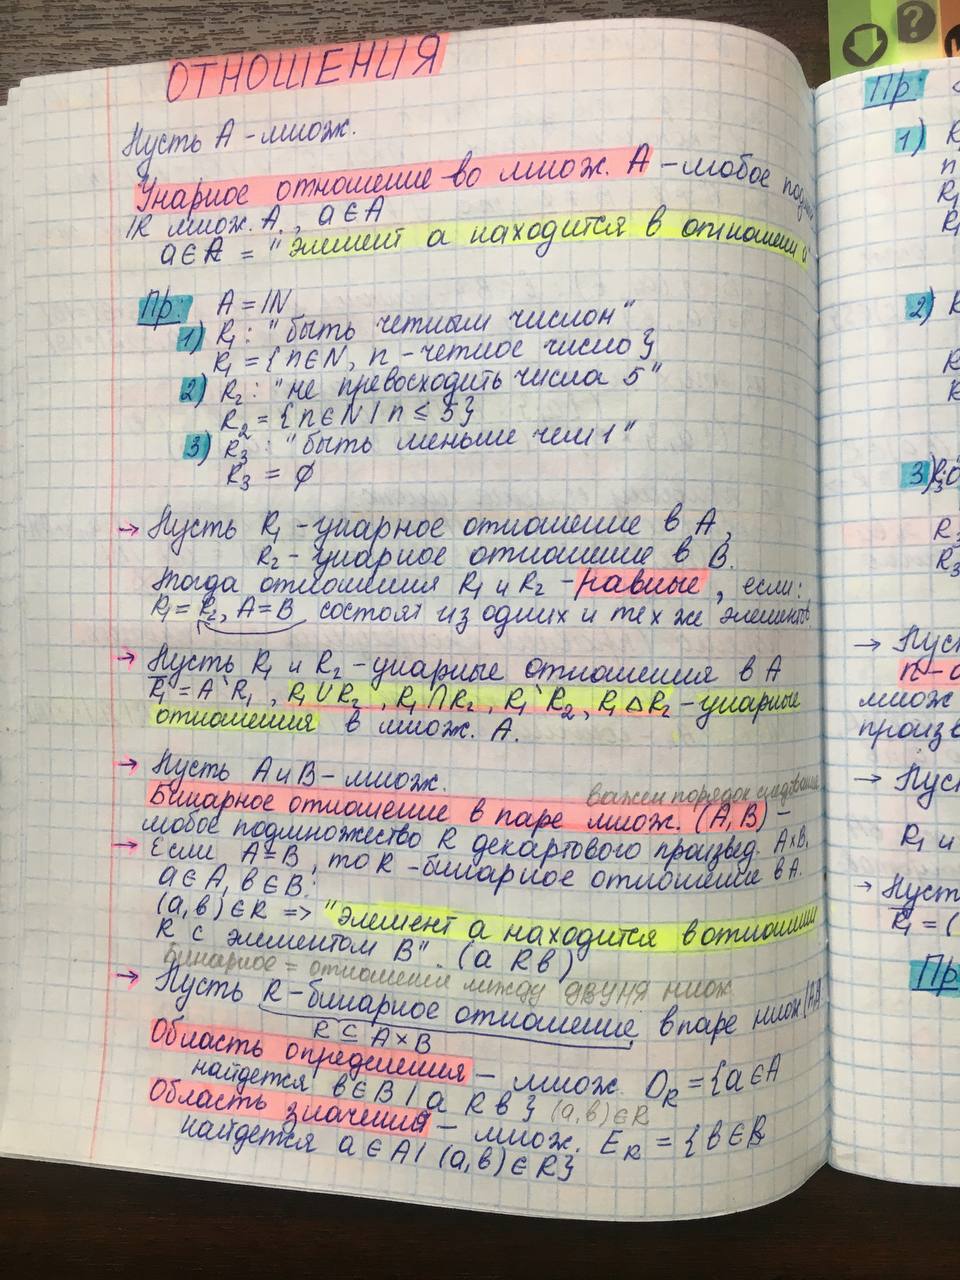 ОТНОШЕНИЯ
Пусть А - множ.
Унарное отношение во множ. А - любое
R множ. А., a ∈ A
a ∈ R = "элемент а находится в отношении
Пр: A = IN
1) R₁: "быть четным числом"
R₁ = { n ∈ N, n - четное число }
2) R₂: "не превосходить числа 5"
R₂ = { n ∈ N | n ≤ 5}
3) R₃: "быть меньше чем 1"
R₃ = ∅
→ Пусть R₁ - унарное отношение в А,
R₂ - унарное отношение в В.
Тогда отношения R₁ и R₂ - равные, если:
R₁ = R₂, A = B состоят из одних и тех же элементов
→ Пусть R₁ и R₂ - унарные отношения в А
R̅₁ = A \ R₁, R₁ ∪ R₂, R₁ ∩ R₂, R₁ \ R₂, R₁ △ R₂ - унарные
отношения в множ. А.
→ Пусть А и В - множ.
важен порядок следования
Бинарное отношение в паре множ. (А, В) -
любое подмножество R декартового произвед. A×B.
→ Если A = B, то R - бинарное отношение в А.
a ∈ A, b ∈ B:
(a, b) ∈ R => "элемент а находится в отношении
R с элементом В". (a R b)
бинарное = отношение между ДВУМЯ множ
→ Пусть R - бинарное отношение, в паре множ
R ⊆ A × B
Область определения - множ. O_R = {a ∈ A
найдется b ∈ B | a R b } (a, b) ∈ R
Область значения - множ. E_R = { b ∈ B
найдется a ∈ A | (a, b) ∈ R}
Пр:
1) R
n
R₁
R₁
2) R
R
R
3) R₃:
R₃
R₃
→ Пуст
n -
множ
произв
→ Пуст
R₁ и
→ Пуст
R̅₁ = (
Пр
?